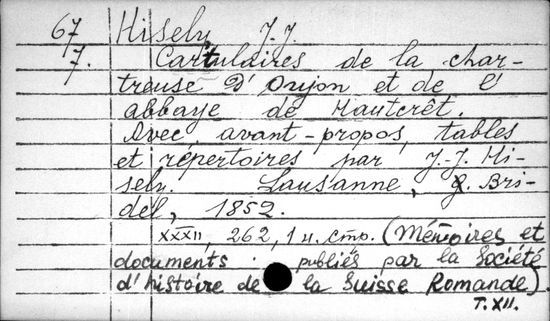 67 Hisely J.J.
7. Cartulaires de la char-
treuse d'Oujon et de l'
abbaye de Hautcrêt.
Avec avant-propos, tables
et répertoires par J.-J. Hi-
sely. Lausanne, G. Bri-
del, 1852.
XXXII, 262, 1 н. стр. (Mémoires et
documents publiés par la Société
d'histoire de la Suisse Romande).
T. XII.